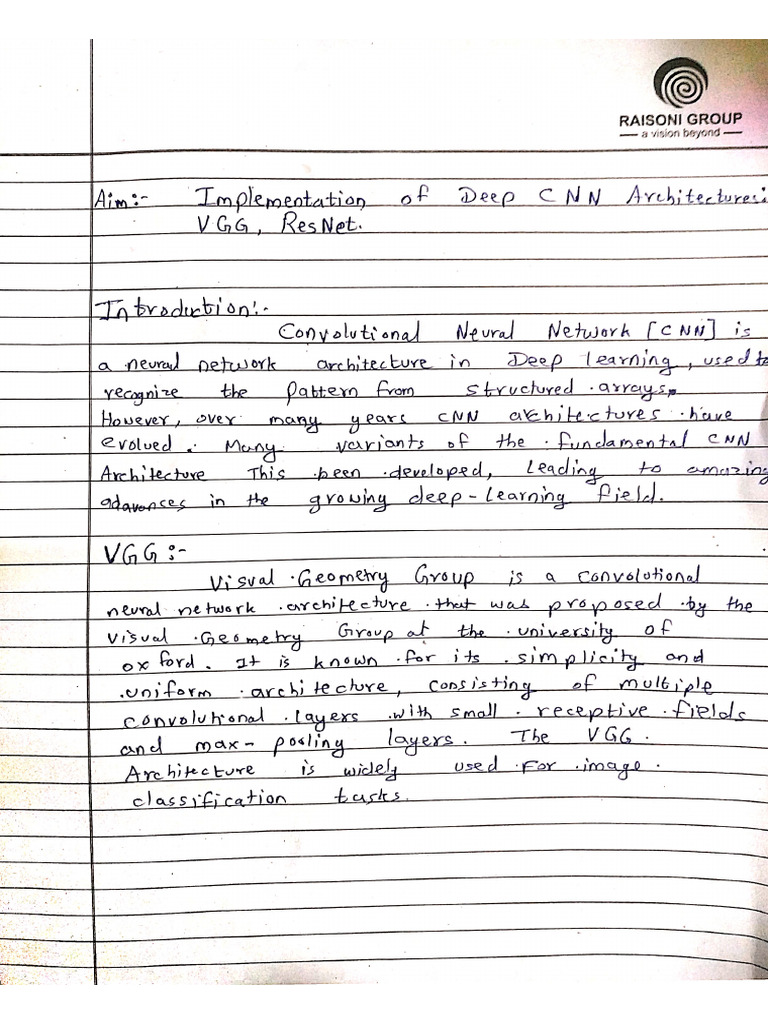 RAISONI GROUP
a vision beyond
Aim:- Implementation of Deep CNN Architectures:
VGG, ResNet.
Introduction:-
Convolutional Neural Network [CNN] is
a neural network architecture in Deep learning, used to
recognize the pattern from structured arrays.
However, over many years CNN architectures have
evolved. Many variants of the fundamental CNN
Architecture This been developed, Leading to amazing
adavences in the growing deep-Learning field.
VGG:-
Visual Geometry Group is a convolutional
neural network architecture that was proposed by the
visual Geometry Group at the university of
oxford. It is known for its simplicity and
uniform architecture, consisting of multiple
convolutional layers with small receptive fields
and max-pooling layers. The VGG
Architecture is widely used for image
classification tasks.